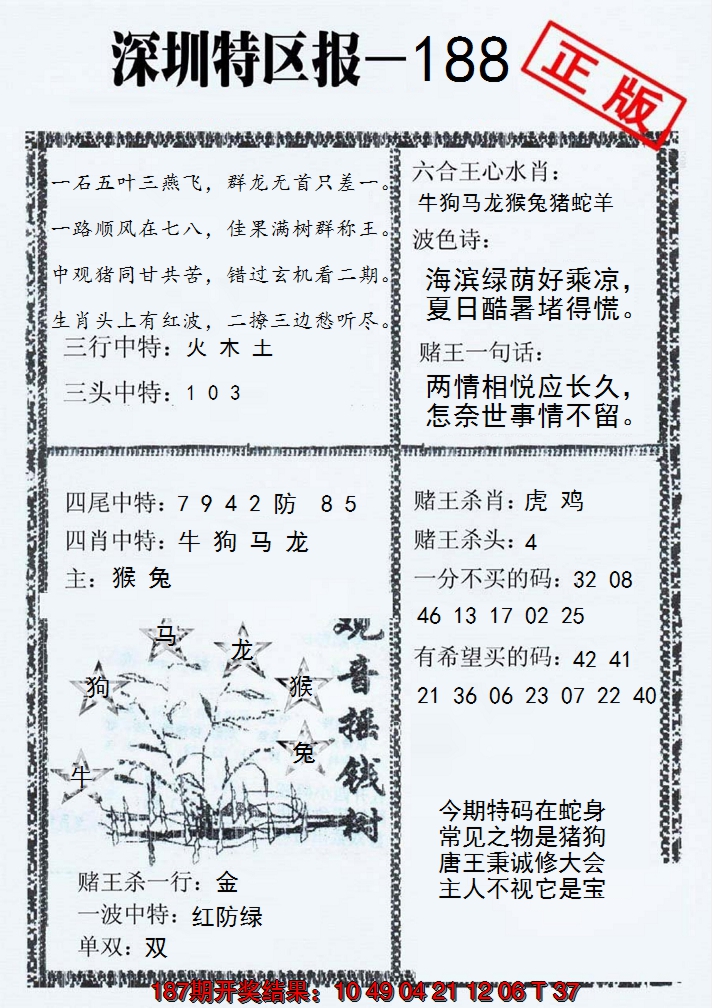 深圳特区报—188
正版
一石五叶三燕飞，群龙无首只差一。
一路顺风在七八，佳果满树群称王。
中观猪同甘共苦，错过玄机看二期。
生肖头上有红波，二撩三边愁听尽。
三行中特：火 木 土
三头中特：1 0 3
六合王心水肖：
牛狗马龙猴兔猪蛇羊
波色诗：
海滨绿荫好乘凉，
夏日酷暑堵得慌。
赌王一句话：
两情相悦应长久，
怎奈世事情不留。
四尾中特：7 9 4 2 防 8 5
四肖中特：牛 狗 马 龙
主：猴 兔
马
龙
狗
猴
兔
牛
观音摇钱树
赌王杀一行：金
一波中特：红防绿
单双：双
赌王杀肖：虎 鸡
赌王杀头：4
一分不买的码：32 08
46 13 17 02 25
有希望买的码：42 41
21 36 06 23 07 22 40
今期特码在蛇身
常见之物是猪狗
唐王秉诚修大会
主人不视它是宝
187期开奖结果：10 49 04 21 12 06 T 37